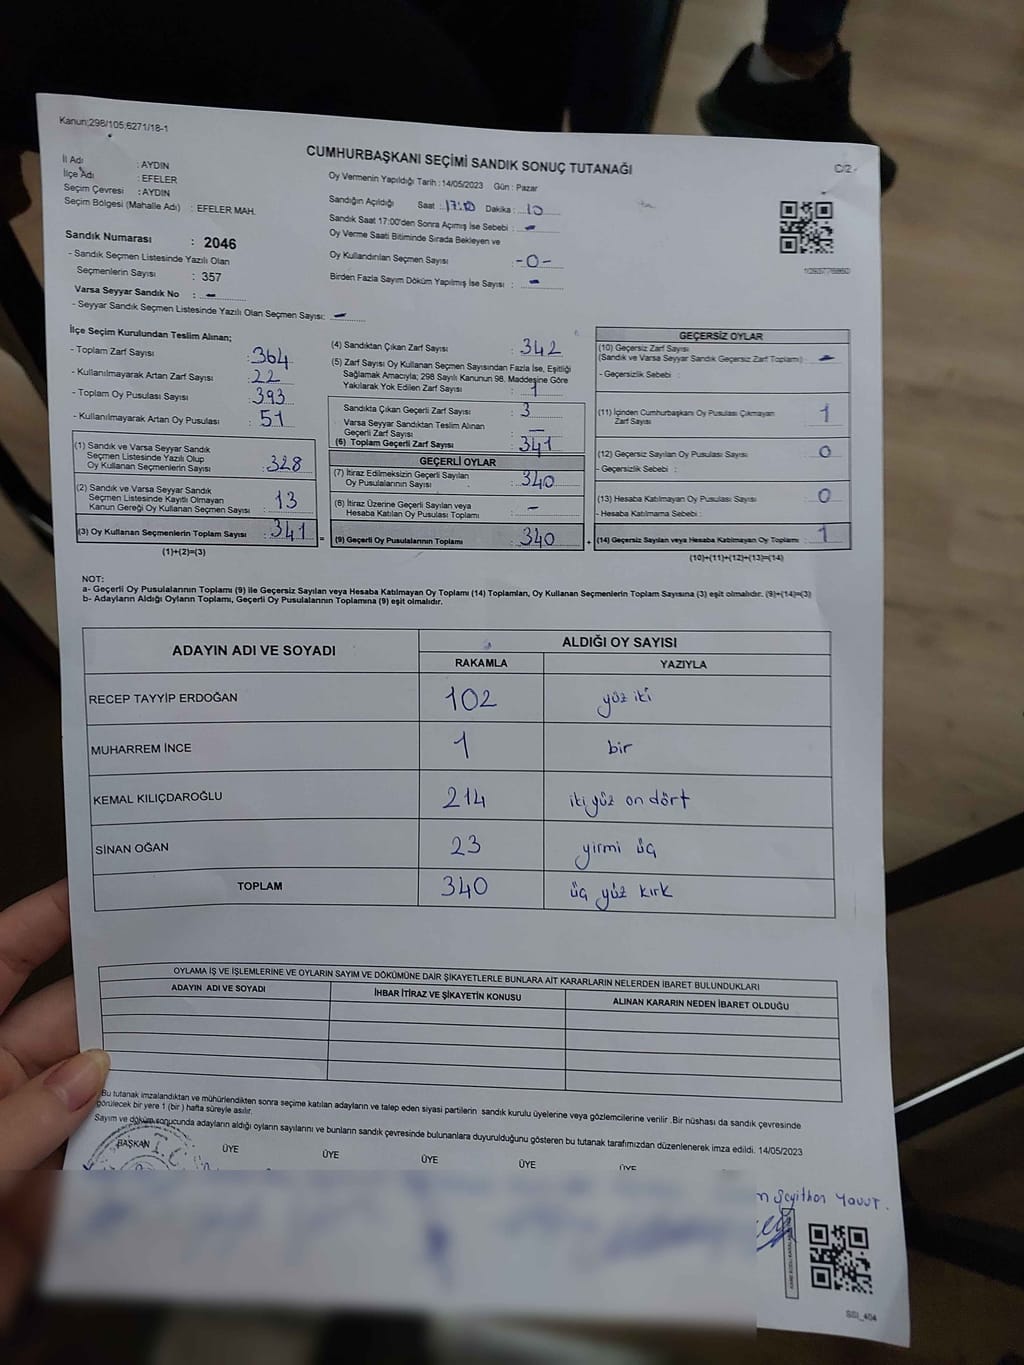 Kanun;298/105,6271/18-1
CUMHURBAŞKANI SEÇİMİ SANDIK SONUÇ TUTANAĞI
C/2
İl Adı : AYDIN
İlçe Adı : EFELER
Seçim Çevresi : AYDIN
Seçim Bölgesi (Mahalle Adı) : EFELER MAH.
Sandık Numarası : 2046
- Sandık Seçmen Listesinde Yazılı Olan
Seçmenlerin Sayısı : 357
Varsa Seyyar Sandık No : -
- Seyyar Sandık Seçmen Listesinde Yazılı Olan Seçmen Sayısı: -
Oy Vermenin Yapıldığı Tarih : 14/05/2023 Gün : Pazar
Sandığın Açıldığı Saat : 17:10 Dakika : 10
Sandık Saat 17:00'den Sonra Açımış İse Sebebi : -
Oy Verme Saati Bitiminde Sırada Bekleyen ve
Oy Kullandırılan Seçmen Sayısı : -0-
Birden Fazla Sayım Döküm Yapılmış İse Sayısı : -
İlçe Seçim Kurulundan Teslim Alınan;
- Toplam Zarf Sayısı : 364
- Kullanılmayarak Artan Zarf Sayısı : 22
- Toplam Oy Pusulası Sayısı : 393
- Kullanılmayarak Artan Oy Pusulası : 51
(1) Sandık ve Varsa Seyyar Sandık
Seçmen Listesinde Yazılı Olup
Oy Kullanan Seçmenlerin Sayısı : 328
(2) Sandık ve Varsa Seyyar Sandık
Seçmen Listesinde Kayıtlı Olmayan
Kanun Gereği Oy Kullanan Seçmen Sayısı : 13
(3) Oy Kullanan Seçmenlerin Toplam Sayısı : 341 =
(1)+(2)=(3)
(4) Sandıktan Çıkan Zarf Sayısı : 342
(5) Zarf Sayısı Oy Kullanan Seçmen Sayısından Fazla İse, Eşitliği
Sağlamak Amacıyla; 298 Sayılı Kanunun 98. Maddesine Göre
Yakılarak Yok Edilen Zarf Sayısı : 1
Sandıkta Çıkan Geçerli Zarf Sayısı : 3
Varsa Seyyar Sandıktan Teslim Alınan
Geçerli Zarf Sayısı : -
(6) Toplam Geçerli Zarf Sayısı : 341
GEÇERLİ OYLAR
(7) İtiraz Edilmeksizin Geçerli Sayılan
Oy Pusulalarının Sayısı : 340
(8) İtiraz Üzerine Geçerli Sayılan veya
Hesaba Katılan Oy Pusulası Toplamı : -
(9) Geçerli Oy Pusulalarının Toplamı : 340 +
GEÇERSİZ OYLAR
(10) Geçersiz Zarf Sayısı
(Sandık ve Varsa Seyyar Sandık Geçersiz Zarf Toplamı) : -
- Geçersizlik Sebebi :
(11) İçinden Cumhurbaşkanı Oy Pusulası Çıkmayan
Zarf Sayısı : 1
(12) Geçersiz Sayılan Oy Pusulası Sayısı : 0
- Geçersizlik Sebebi :
(13) Hesaba Katılmayan Oy Pusulası Sayısı : 0
- Hesaba Katılmama Sebebi :
(14) Geçersiz Sayılan veya Hesaba Katılmayan Oy Toplamı : 1
(10)+(11)+(12)+(13)=(14)
NOT:
a- Geçerli Oy Pusulalarının Toplamı (9) ile Geçersiz Sayılan veya Hesaba Katılmayan Oy Toplamı (14) Toplamları, Oy Kullanan Seçmenlerin Toplam Sayısına (3) eşit olmalıdır. (9)+(14)=(3)
b- Adayların Aldığı Oyların Toplamı, Geçerli Oy Pusulalarının Toplamına (9) eşit olmalıdır.
ADAYIN ADI VE SOYADI ALDIĞI OY SAYISI
RAKAMLA YAZIYLA
RECEP TAYYİP ERDOĞAN 102 yüz iki
MUHARREM İNCE 1 bir
KEMAL KILIÇDAROĞLU 214 iki yüz on dört
SİNAN OĞAN 23 yirmi üç
TOPLAM 340 üç yüz kırk
OYLAMA İŞ VE İŞLEMLERİNE VE OYLARIN SAYIM VE DÖKÜMÜNE DAİR ŞİKAYETLERLE BUNLARA AİT KARARLARIN NELERDEN İBARET BULUNDUKLARI
ADAYIN ADI VE SOYADI İHBAR İTİRAZ VE ŞİKAYETİN KONUSU ALINAN KARARIN NEDEN İBARET OLDUĞU
Bu tutanak imzalandıktan ve mühürlendikten sonra seçime katılan adayların ve talep eden siyasi partilerin sandık kurulu üyelerine veya gözlemcilerine verilir .Bir nüshası da sandık çevresinde
görülecek bir yere 1 (bir ) hafta süreyle asılır.
Sayım ve döküm sonucunda adayların aldığı oyların sayılarını ve bunların sandık çevresinde bulunanlara duyurulduğunu gösteren bu tutanak tarafımızdan düzenlenerek imza edildi. 14/05/2023
BAŞKAN ÜYE ÜYE ÜYE ÜYE ÜYE
Seyithan Yavuz.
SSI_404